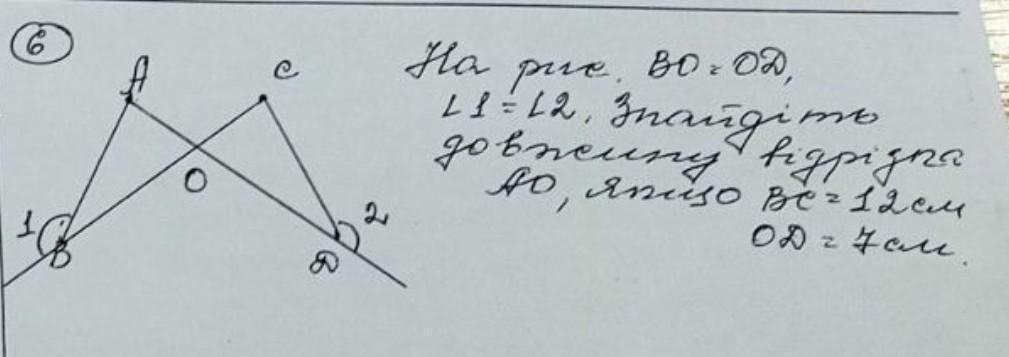 6
A
C
На рис. BO = OD,
∠1 = ∠2. Знайдіть
довжину відрізка
AO, якщо BC = 12 см
OD = 7 см.
O
1
2
B
D